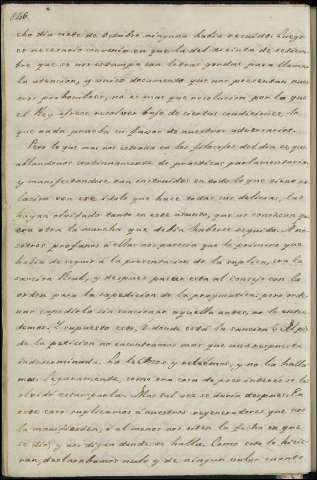 846
cho dia siete de Octubre ninguna habia recaido. Luego
es necesario convenir en que la del treinta de setiem-
bre que se nos estampa con letras gordas para llamar
la atencion, y unico documento que nos presentan nues-
tros prohombres, no es mas que resolucion por la que
el Rey ofrece resolver bajo de ciertas condiciones, lo
que nada prueba en favor de nuestros adversarios.
Pero lo que mas nos estraña en los filosofos del dia es, que
hablandonos continuamente de practicas parlamentarias
y manifestandose tan instruidos en todo lo que tiene re-
lacion con este idolo que hace todas sus delicias, las
hayan olvidado tanto en este asunto, que no conozcan que
era otra la marcha que debia haberse seguido. A no-
sotros profanos á ellas nos parecia que lo primero que
habia de seguir á la presentacion de la suplica, era la
sancion Real, y despues pasar esta al consejo con la
orden para la espedicion de la pragmatica; pero orde-
nar espedirla sin sancionar aquella antes, no lo enten-
demos. Y supuesto esto, ¿donde está la sancion? Al pie
de la peticion no encontramos mas que una respuesta
indeterminada. La leemos y releemos, y no la halla-
mos. Seguramente, como era cosa de poco interes se les
olvidó estamparla. Mas tal vez se daria despues. En
este caso suplicamos á nuestros regeneradores que nos
la manifiesten, ó al menos nos citen la fecha en que
se dió, y nos digan donde se halla. Como esto lo hicie-
ran, declarabamos nulo y de ningun valor cuanto